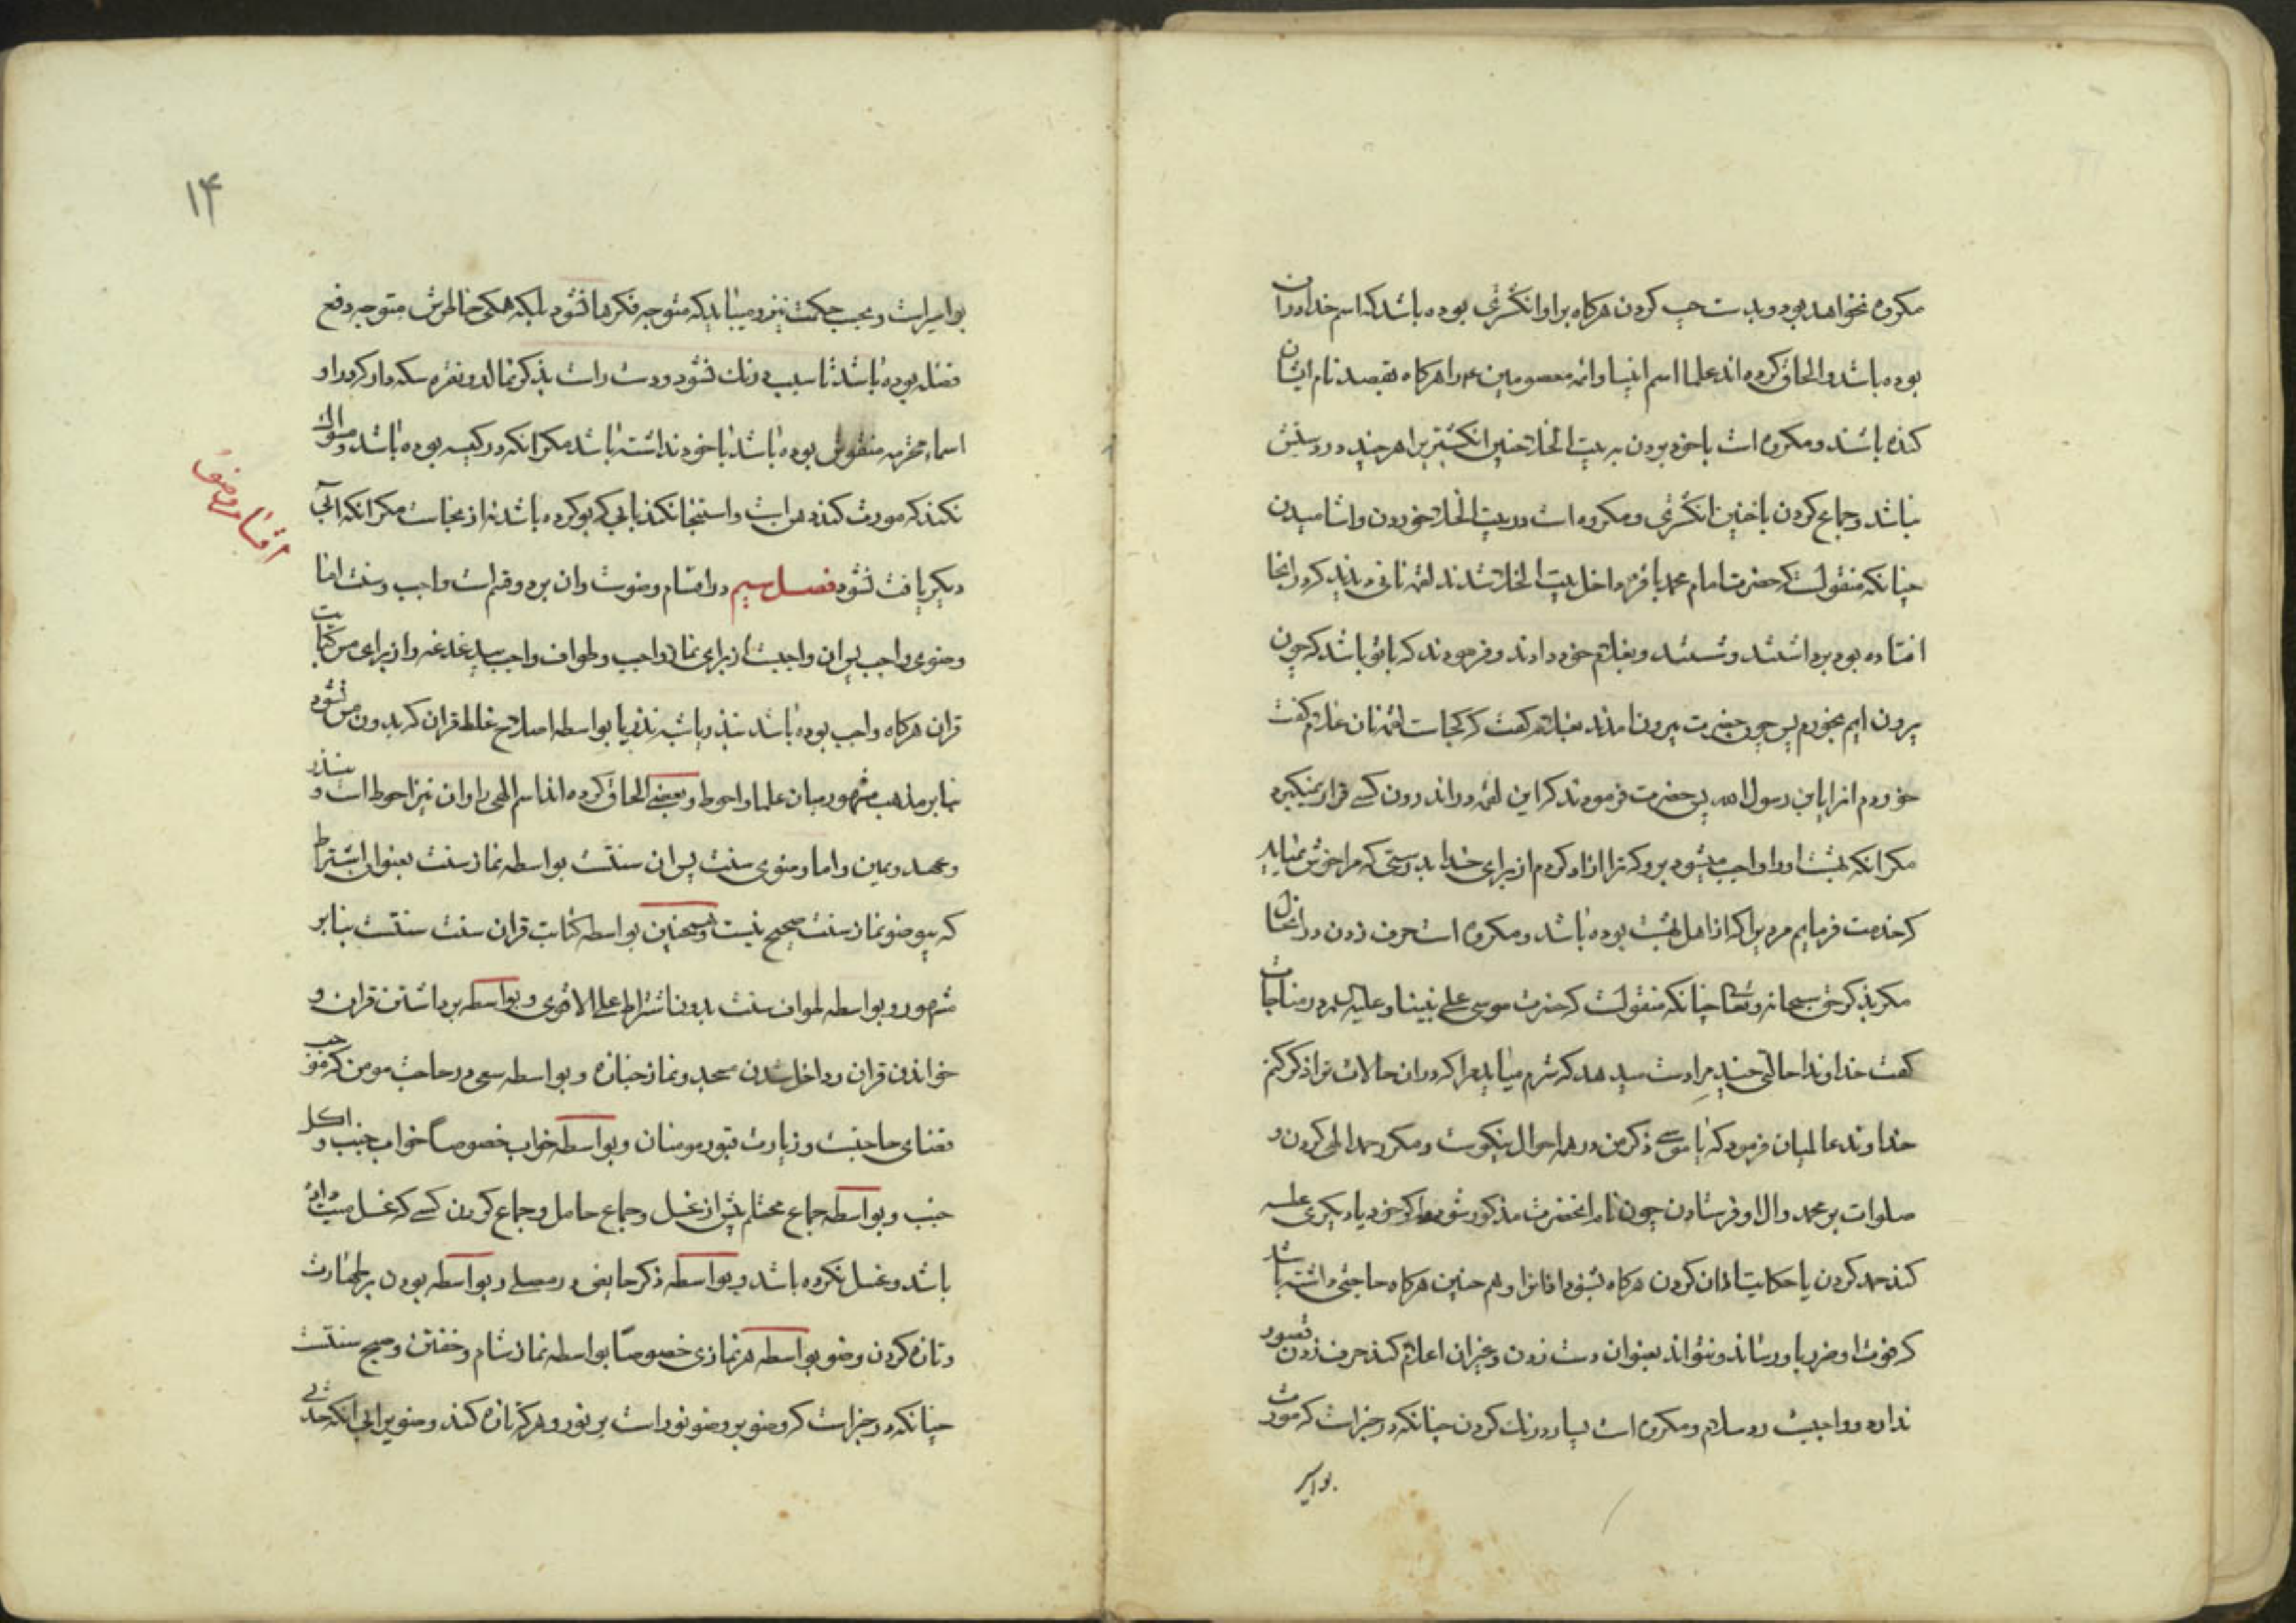 مکروه نخواهد بود و بدست چپ کردن هرکاه براو انکشتری بوده باشد که اسم خدا دران
بوده باشد و الحاق کرده اند علما اسم انبیا و ائمه معصومین ع م را هرکاه بقصد نام ایشان
کنده باشند و مکروه است باخود بردن به بیت الخلا چنین انکشتریرا هرچند در دستش
نباشد و جماع کردن باچنین انکشتری و مکروه است در بیت الخلا خوردن و اشامیدن
چنانکه منقولست که حضرت امام محمد باقر م داخل بیت الخلا شدند لقمه نانی دیدند که در انجا
افتاده بود برداشتند و شستند و بغلام خود دادند و فرمودند که باتو باشد که چون
بیرون ایم بخورم پس چون حضرت بیرون امدند بغلام کفت که کجاست لقمه نان غلام کفت
خوردم انرا یابن رسول الله پس حضرت فرمودند که این لقمه در اندرون کسی قرار نمیکیرد
مکر انکه بهشت اورا واجب میشود برو که ترا ازاد کردم از برای خدا بدرستی که مرا خوش نمیاید
که خدمت فرمایم مردیرا که از اهل بهشت بوده باشد و مکروه است حرف زدن در انحال
مکر بذکر حق سبحانه و تعالی چنانکه منقولست که حضرت موسی علی نبینا و علیه السلام در مناجات
کفت خداوندا حالتی چند مرا دست میدهد که شرم میاید مرا که در ان حالات ترا ذکر کنم
خداوند عالمیان فرمود که یا موسی ذکر من در همه احوال نیکوست و مکر حمد الهی کردن و
صلوات بر محمد و ال او فرستادن چون نام انحضرت مذکور شود یا که خود یا دیکری عطسه
کند حمد کردن یا حکایت اذان کردن هرکاه بشنود اذانرا و هم چنین هرکاه حاجتی داشته باشد
که فوت او ضرر باو رساند و نتواند بعنوان دست زدن و غیر ان اعلام کند حرف زدن قصور
ندارد و واجبست رد سلام و مکروه است بسیار درنك کردن چنانکه در خبر است که مورث
بواسیر
۱۴
بواسیر است و بحسب حکمت نیز و میباید که متوجه فکرها نشود بلکه همکی خاطرش متوجه دفع
فضله بوده باشد تا سبب درنك نشود و دست راست بذکر نمالد و نقره سکه دار که در او
اسماء محترمه منقوش بوده باشد باخود نداشته باشد مکر انکه در کیسه بوده باشد و مسواك
نکند که مورث کنده دهن است و استنجا نکند بابی که بو کرده باشد نه از نجاست مکر انکه ابی
دیکر یافت نشود فصل سیم در اقسام وضوست و ان بردو قسم است واجب و سنت اما
اقسام وضو
وضوی واجب پس ان واجبست از برای نماز واجب و طواف واجب بیدغدغه و از برای مس کتابت
قران هرکاه واجب بوده باشد بنذر یا شبه نذر یا بواسطه اصلاح غلط قران که بدون مس نشود
بنابر مذهب مشهور میان علما و احوط و بعضی الحاق کرده اند اسم الهی را و ان نیز احوط است و بنذر
و عهد و یمین و اما وضوی سنت پس ان سنتست بواسطه نماز سنت بعنوان اشتراط
که بیوضو نماز سنت صحیح نیست و همچنین بواسطه کتابت قران سنت سنتست بنابر
مشهور و بواسطه طواف سنت بدون اشتراط علی الاقوی و بواسطه برداشتن قران و
خواندن قران و داخل شدن مسجد و نماز جنازه و بواسطه سعی در حاجت مومن که موجب
قضای حاجتست و زیارت قبور مومنان و بواسطه خواب خصوصاً خواب جنب و اکل
جنب و بواسطه جماع محتلم پیش از غسل و جماع حامل و جماع کردن کسی که غسل میت داده
باشد و غسل نکرده باشد و بواسطه ذکر حایض در مصلی و بواسطه بودن بر طهارت
و تازه کردن وضو بواسطه هر نمازی خصوصاً بواسطه نماز شام و خفتن و صبح سنتست
چنانکه در خبر است که وضو بر وضو نور است بر نور و هرکه تازه کند وضو برای انکه حدثی